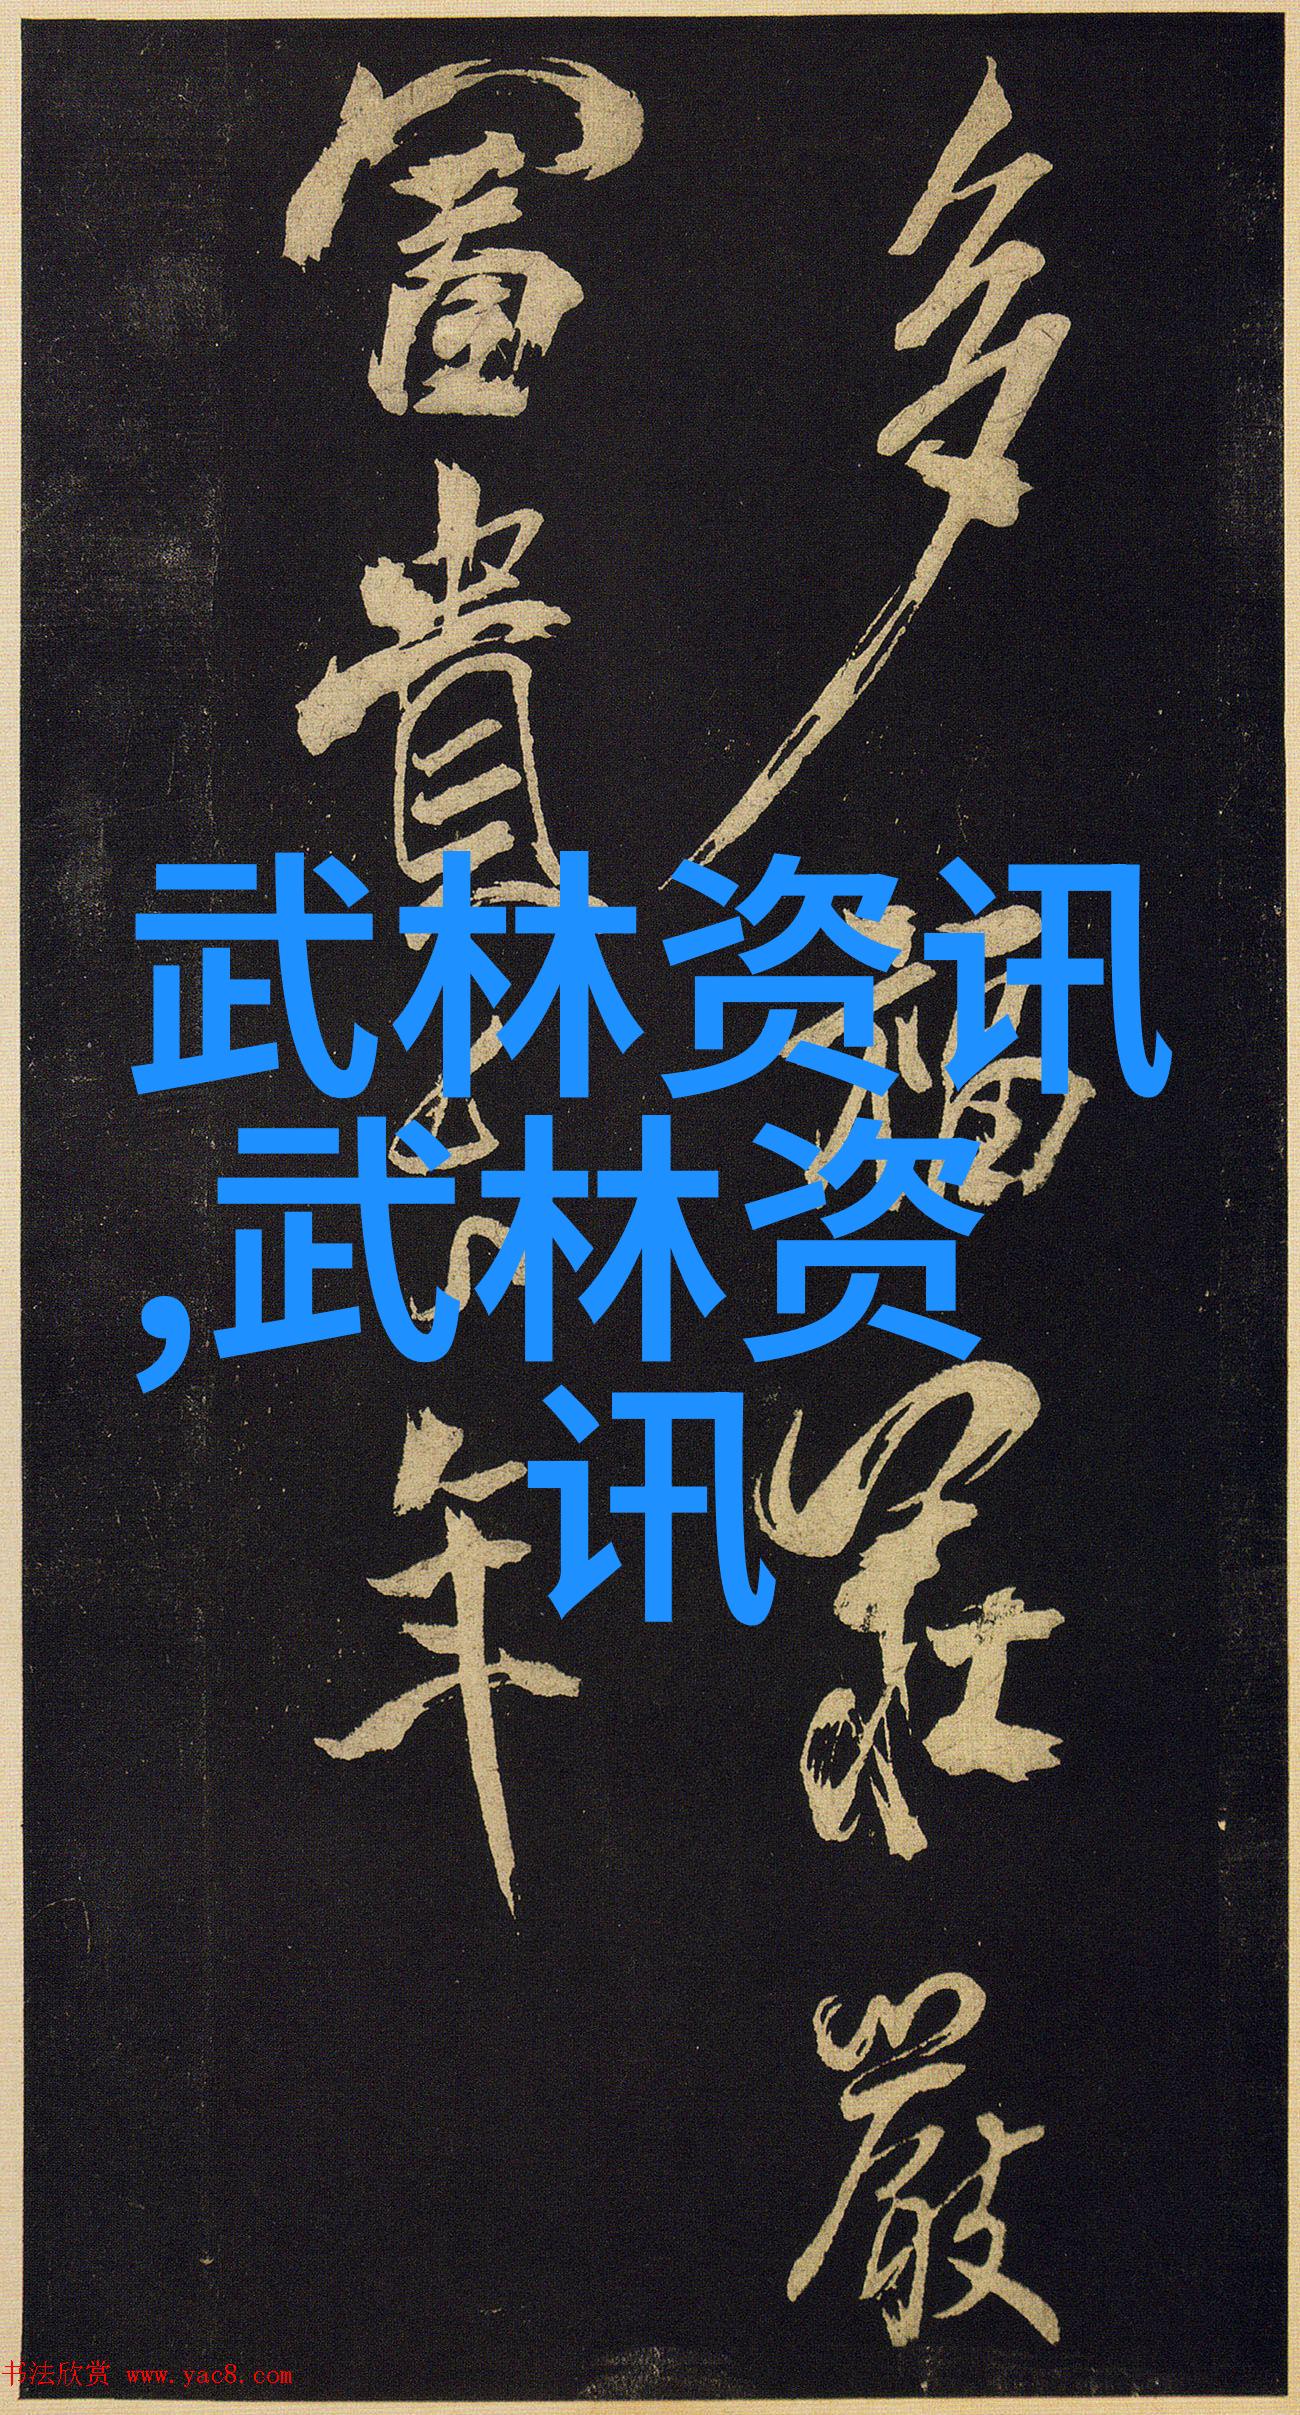 多福莊嚴
富貴
年
武林资讯
,武林资
讯
书法欣赏 www.yac8.com